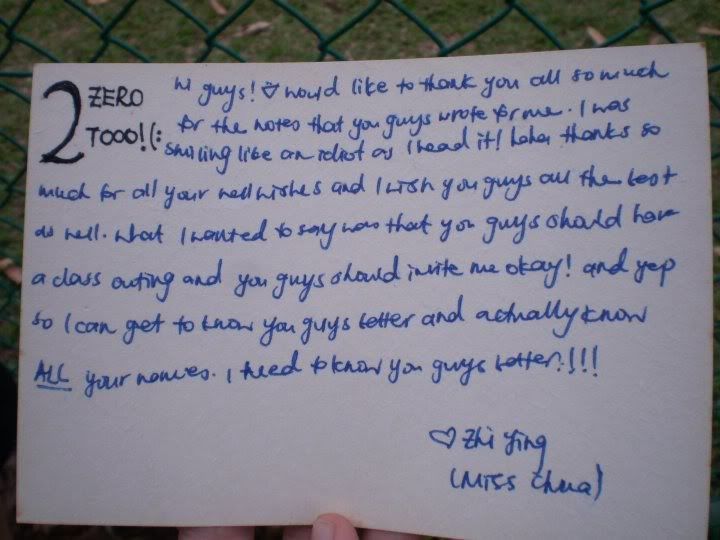 2 ZERO TOOO!(:
hi guys! ♡ would like to thank you all so much
for the notes that you guys wrote for me. I was
smiling like an idiot as I read it! haha thanks so
much for all your wellwishes and I wish you guys all the best
as well. what I wanted to say was that you guys should have
a class outing and you guys should invite me okay! and yep
so I can get to know you guys better and actually know
ALL your names. I need to know you guys better!!!!
♡ Zhi Ying
(Miss Chua)